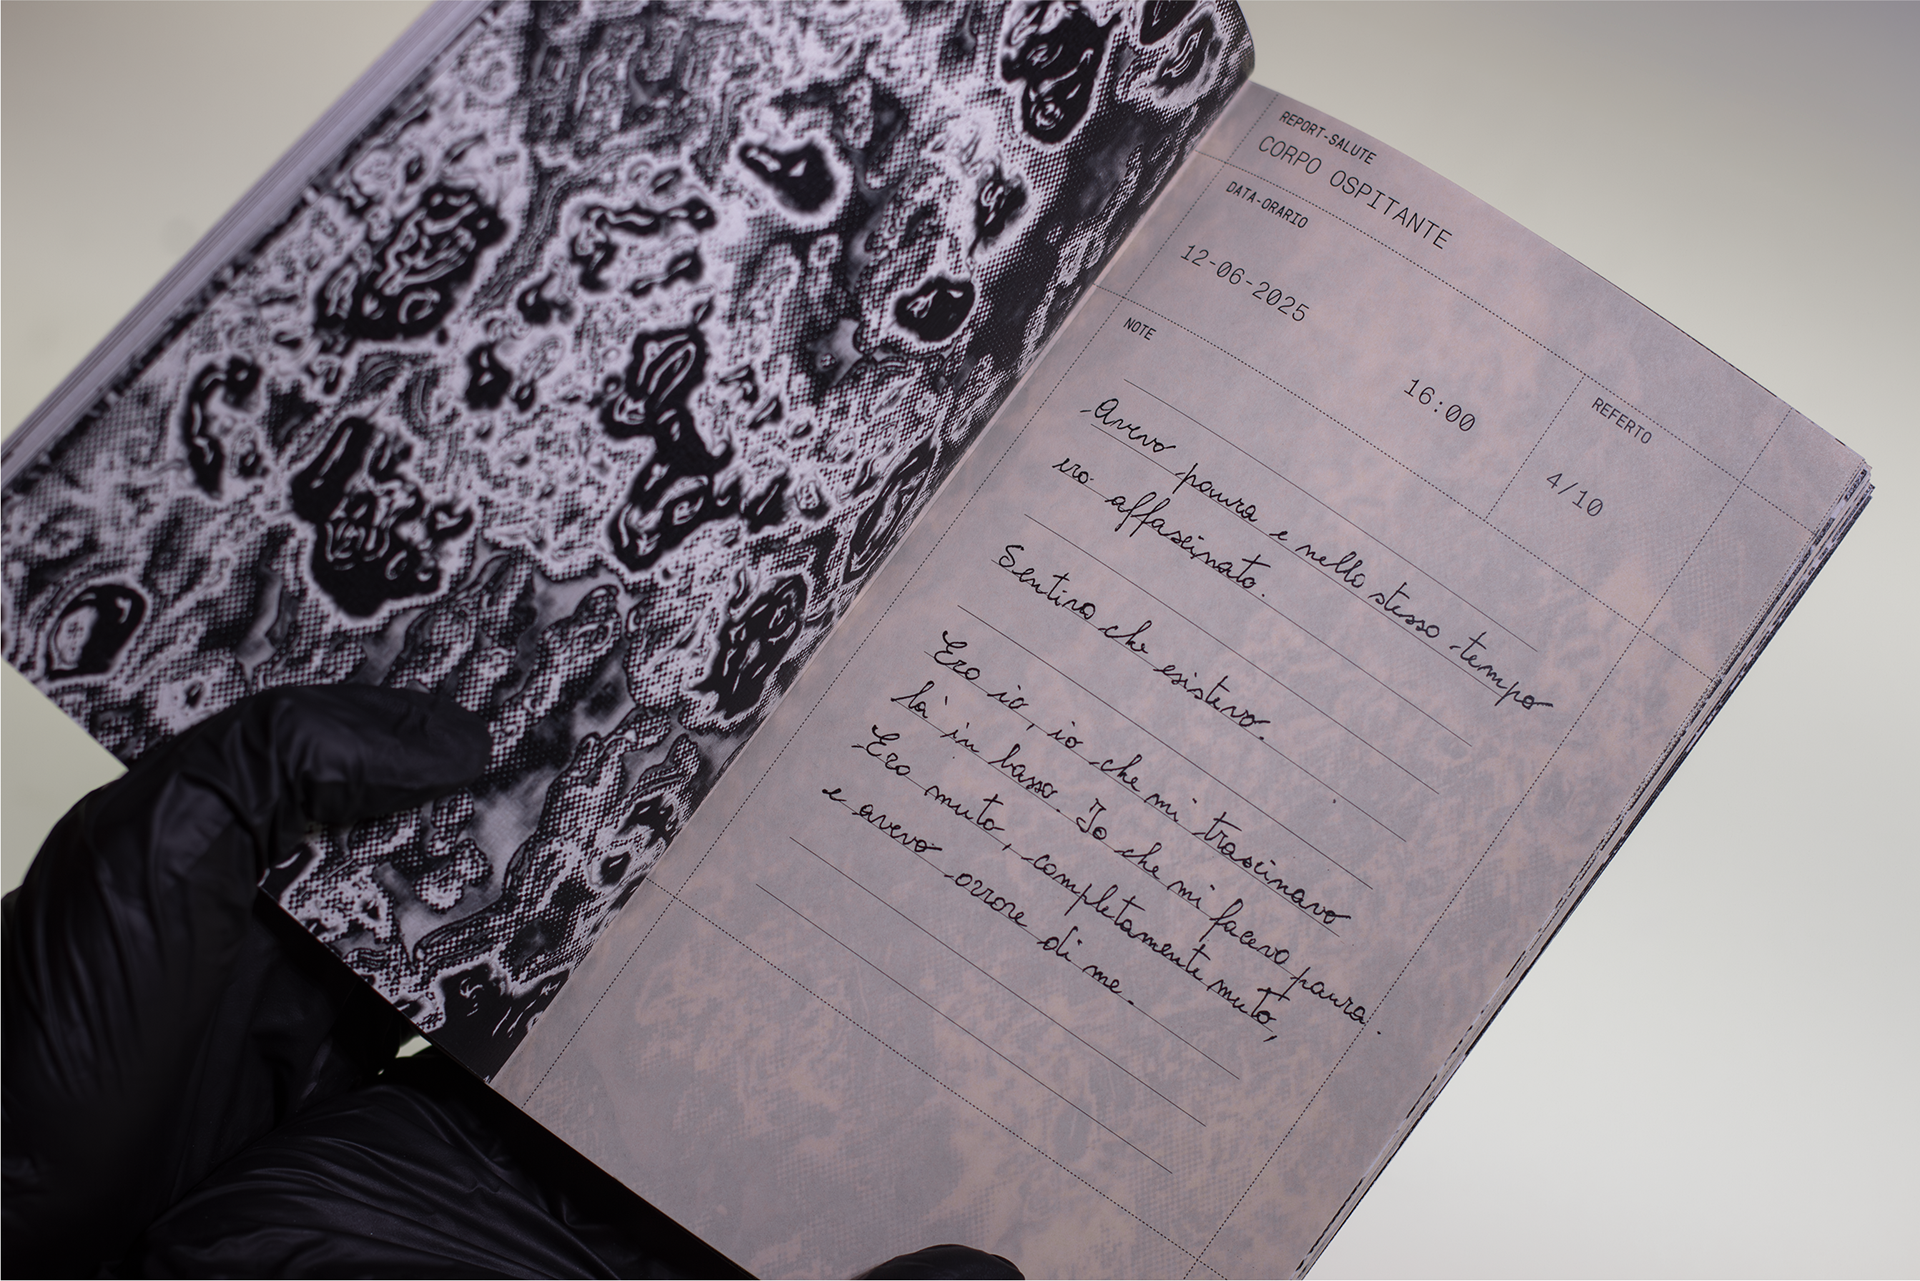 REPORT-SALUTE
CORPO OSPITANTE
DATA-ORARIO
12-06-2025
16:00
REFERTO
4/10
NOTE
Avevo paura e nello stesso tempo
ero affascinato.
Sentivo che esistevo.
Ero io, io che mi trascinavo
là in basso. Io che mi facevo paura.
Ero muto, completamente muto,
e avevo orrore di me.